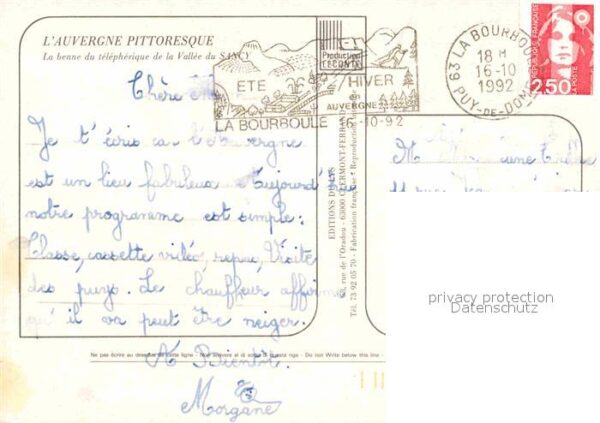 L'AUVERGNE PITTORESQUE
La benne du téléphérique de la Vallée du SANCY
Production
ESCONTE
ETE
/ HIVER
AUVERGNE
LA BOURBOULE 16-10-92
63 LA BOURBOULE
18 H
16-10
1992
PUY-DE-DOME
REPUBLIQUE FRANÇAISE
2,50
LA POSTE
Chère
Je t'écris car l'auvergne
est un lieu fabuleux Aujourd'hui
notre programme est simple:
Classe, cassette vidéo, repas, Visite
des puys. Le chauffeur affirme
qu'il va peut être neiger.
A Bientôt.
Morgane
EDITIONS DU LYS
63, rue de l'Oradou - 63000 CLERMONT-FERRAND
Tél. 73 92 05 70 - Fabrication française - Reproduction
M
Ne pas écrire au dessous de cette ligne - Do not Write below this line
privacy protection
Datenschutz